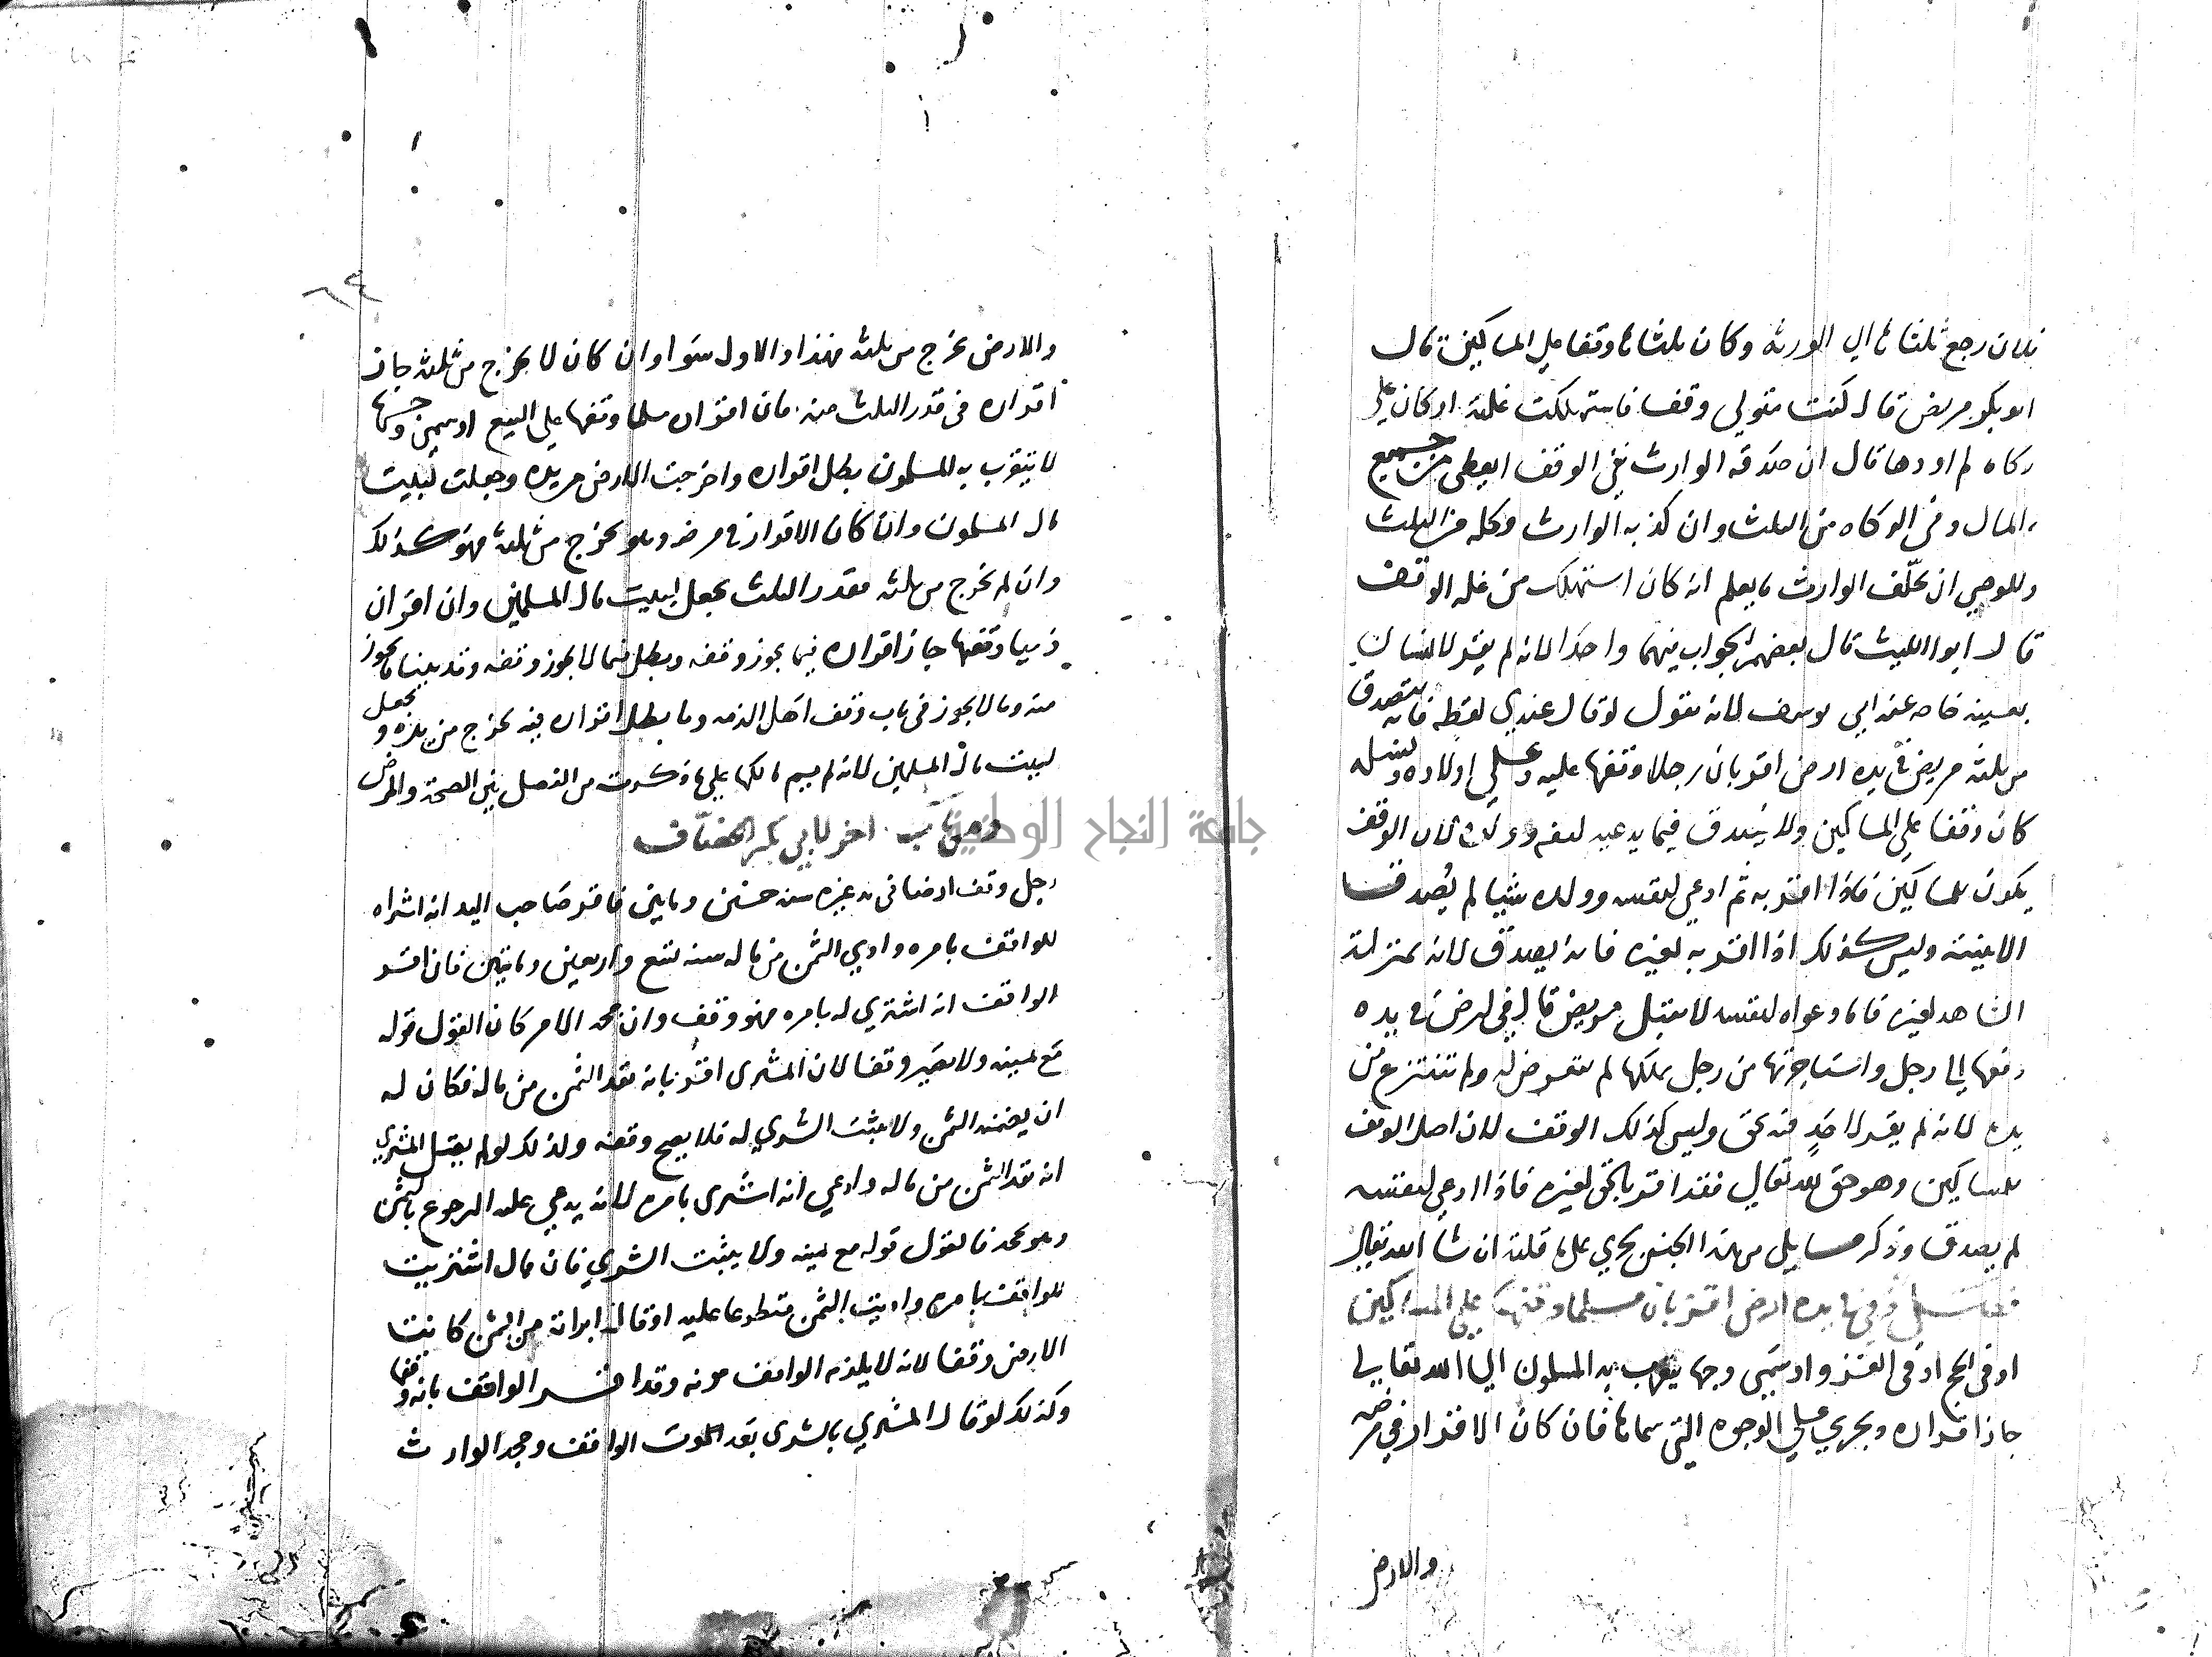 فلان رجع ثلثاها الي الورثة وكان ثلثاها وقفا علي المساكين قال
ابو بكر مريض قال كنت متولي وقف فاستهلكت غلته او كان علي
زكاة لم اودها قال ان صدقه الوارث ففي الوقف ايعطي من جميع
المال وفي الزكاه من الثلث وان كذبه الوارث وكله من الثلث
وللوصي ان يحلّف الوارث ما يعلم انه كان استهلك من غله الوقف
قال ابوا الليث قال بعضهم الجواب فيهما واحد لانه لم يقر لانسان
بعينه خاصه عند ابي يوسف لانه يقول لو قال عندي لقطه فانه يتصدق
من ثلثه مريض في يده ارض اقر بان رجلا وقفها عليه وعلي اولاده ونسله
كان وقفا علي المساكين ولا يصدق فيما يدعيه لنفسه وولده لان الوقف
يكون للمساكين فاذا اقر به ثم ادعي لنفسه وولده شيا لم يُصدق
الا ببينة وليس كذلك اذا اقر به لغيره فانه يصدق لانه بمنزلة
الشاهد لغيره فاما دعواه لنفسه لا يقبل مريض قال في ارض في يده
دفعها الي رجل واستاجرتها من رجل يملكها لم يتعرض له ولم تنتزع من
يده لانه لم يقر لاحدٍ فيه بحق وليس كذلك الوقف لان اصل الوقف
للمساكين وهو حق لله تعالي فقد اقر بالحق لغيره فاذا ادعي لنفسه
لم يصدق وذكر مسايل من هذا الجنس يجري علي ما قلنه ان شا الله تعالي
في يده ارض اقر بان مسلما وقفها علي المساكين
او في الحج او في الغزو او سَمّى وجها يتقرب به المسلمون الي الله تعالي
جاز اقراره ويجري علي الوجوه التي سماها فان كان الاقرار في مرضه
والارض
٦٤
والارض تخرج من ثلثه فهذا والاول سَوا وان كان لا يخرج من ثلثه جاز
اقراره في قدر الثلث منه فان اقر ان مسلما وقفها علي البيع او سمي وجها
لا يتقرب به المسلمون بطل اقراره واخرجت الارض من يده وجعلت لبيت
مال المسلمون وان كان الاقرار في مرضه وهو يخرج من ثلثه فهو كذلك
وان لم يخرج من ثلثه فقدر الثلث يجعل لبيت مال المسلمين وان اقر ان
ذميا وقفها جاز اقراره فيما يجوز وقفه وبطل فيما لا يجوز وقفه وقد بينا ما يجوز
منه وما لا يجوز في باب وقف اهل الذمه وما بطل اقراره فيه يخرج من يده ويجعل
لبيت مال المسلمين لانه لم يسم مالكها علي ما ذكرت من الفصل بين الصحة والمرض
ومن باب اخر لابي بكر الخصّاف
رجل وقف ارضا في يد غيره سنه خمسين ومايتين فاقر صَاحب اليد انه اشتراه
للواقف بامره وادي الثمن من ماله سنه تسع واربعين ومايتين فان اقر
الواقف انه اشتري له بامره فهو وقف وان جحد الامر كان القول قوله
مع يمينه ولا يصير وقفا لان المشتري اقر بانه نقد الثمن من ماله فكان له
ان يضمنه الثمن ولا يثبت الشري له فلا يصح وقفه ولذلك لو لم يقبل المشتري
انه نقد الثمن من ماله وادعي انه اشترى بامره لانه يدعي عليه الرجوع بالثمن
وهو يجحد فالقول قوله مع يمينه ولا يثبت الشري فان قال اشتريت
للواقف بامره واديت الثمن متطوعا عليه او قال ابراته من الثمن كانت
الارض وقفا لانه لا يلزم الواقف مونه وقد اقر الواقف بانه وقفها
وكذلك لو قال المشتري بالشرى بعد الموت الواقف وجحد الوارث
جامعة النجاح الوطنية